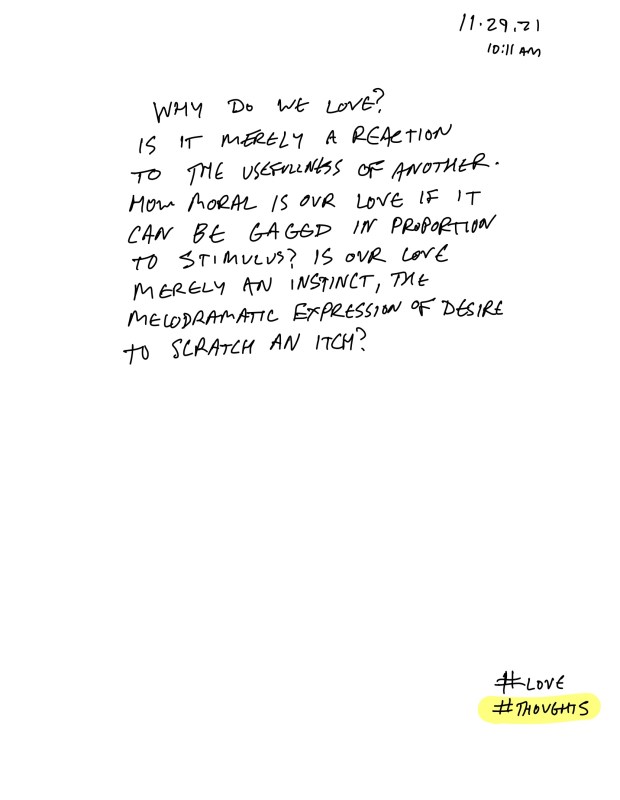 11.29.21
10:11 AM
WHY DO WE LOVE?
IS IT MERELY A REACTION
TO THE USEFULLNESS OF ANOTHER.
HOW MORAL IS OUR LOVE IF IT
CAN BE GAGED IN PROPORTION
TO STIMULUS? IS OUR LOVE
MERELY AN INSTINCT, THE
MELODRAMATIC EXPRESSION OF DESIRE
TO SCRATCH AN ITCH?
#LOVE
#THOUGHTS